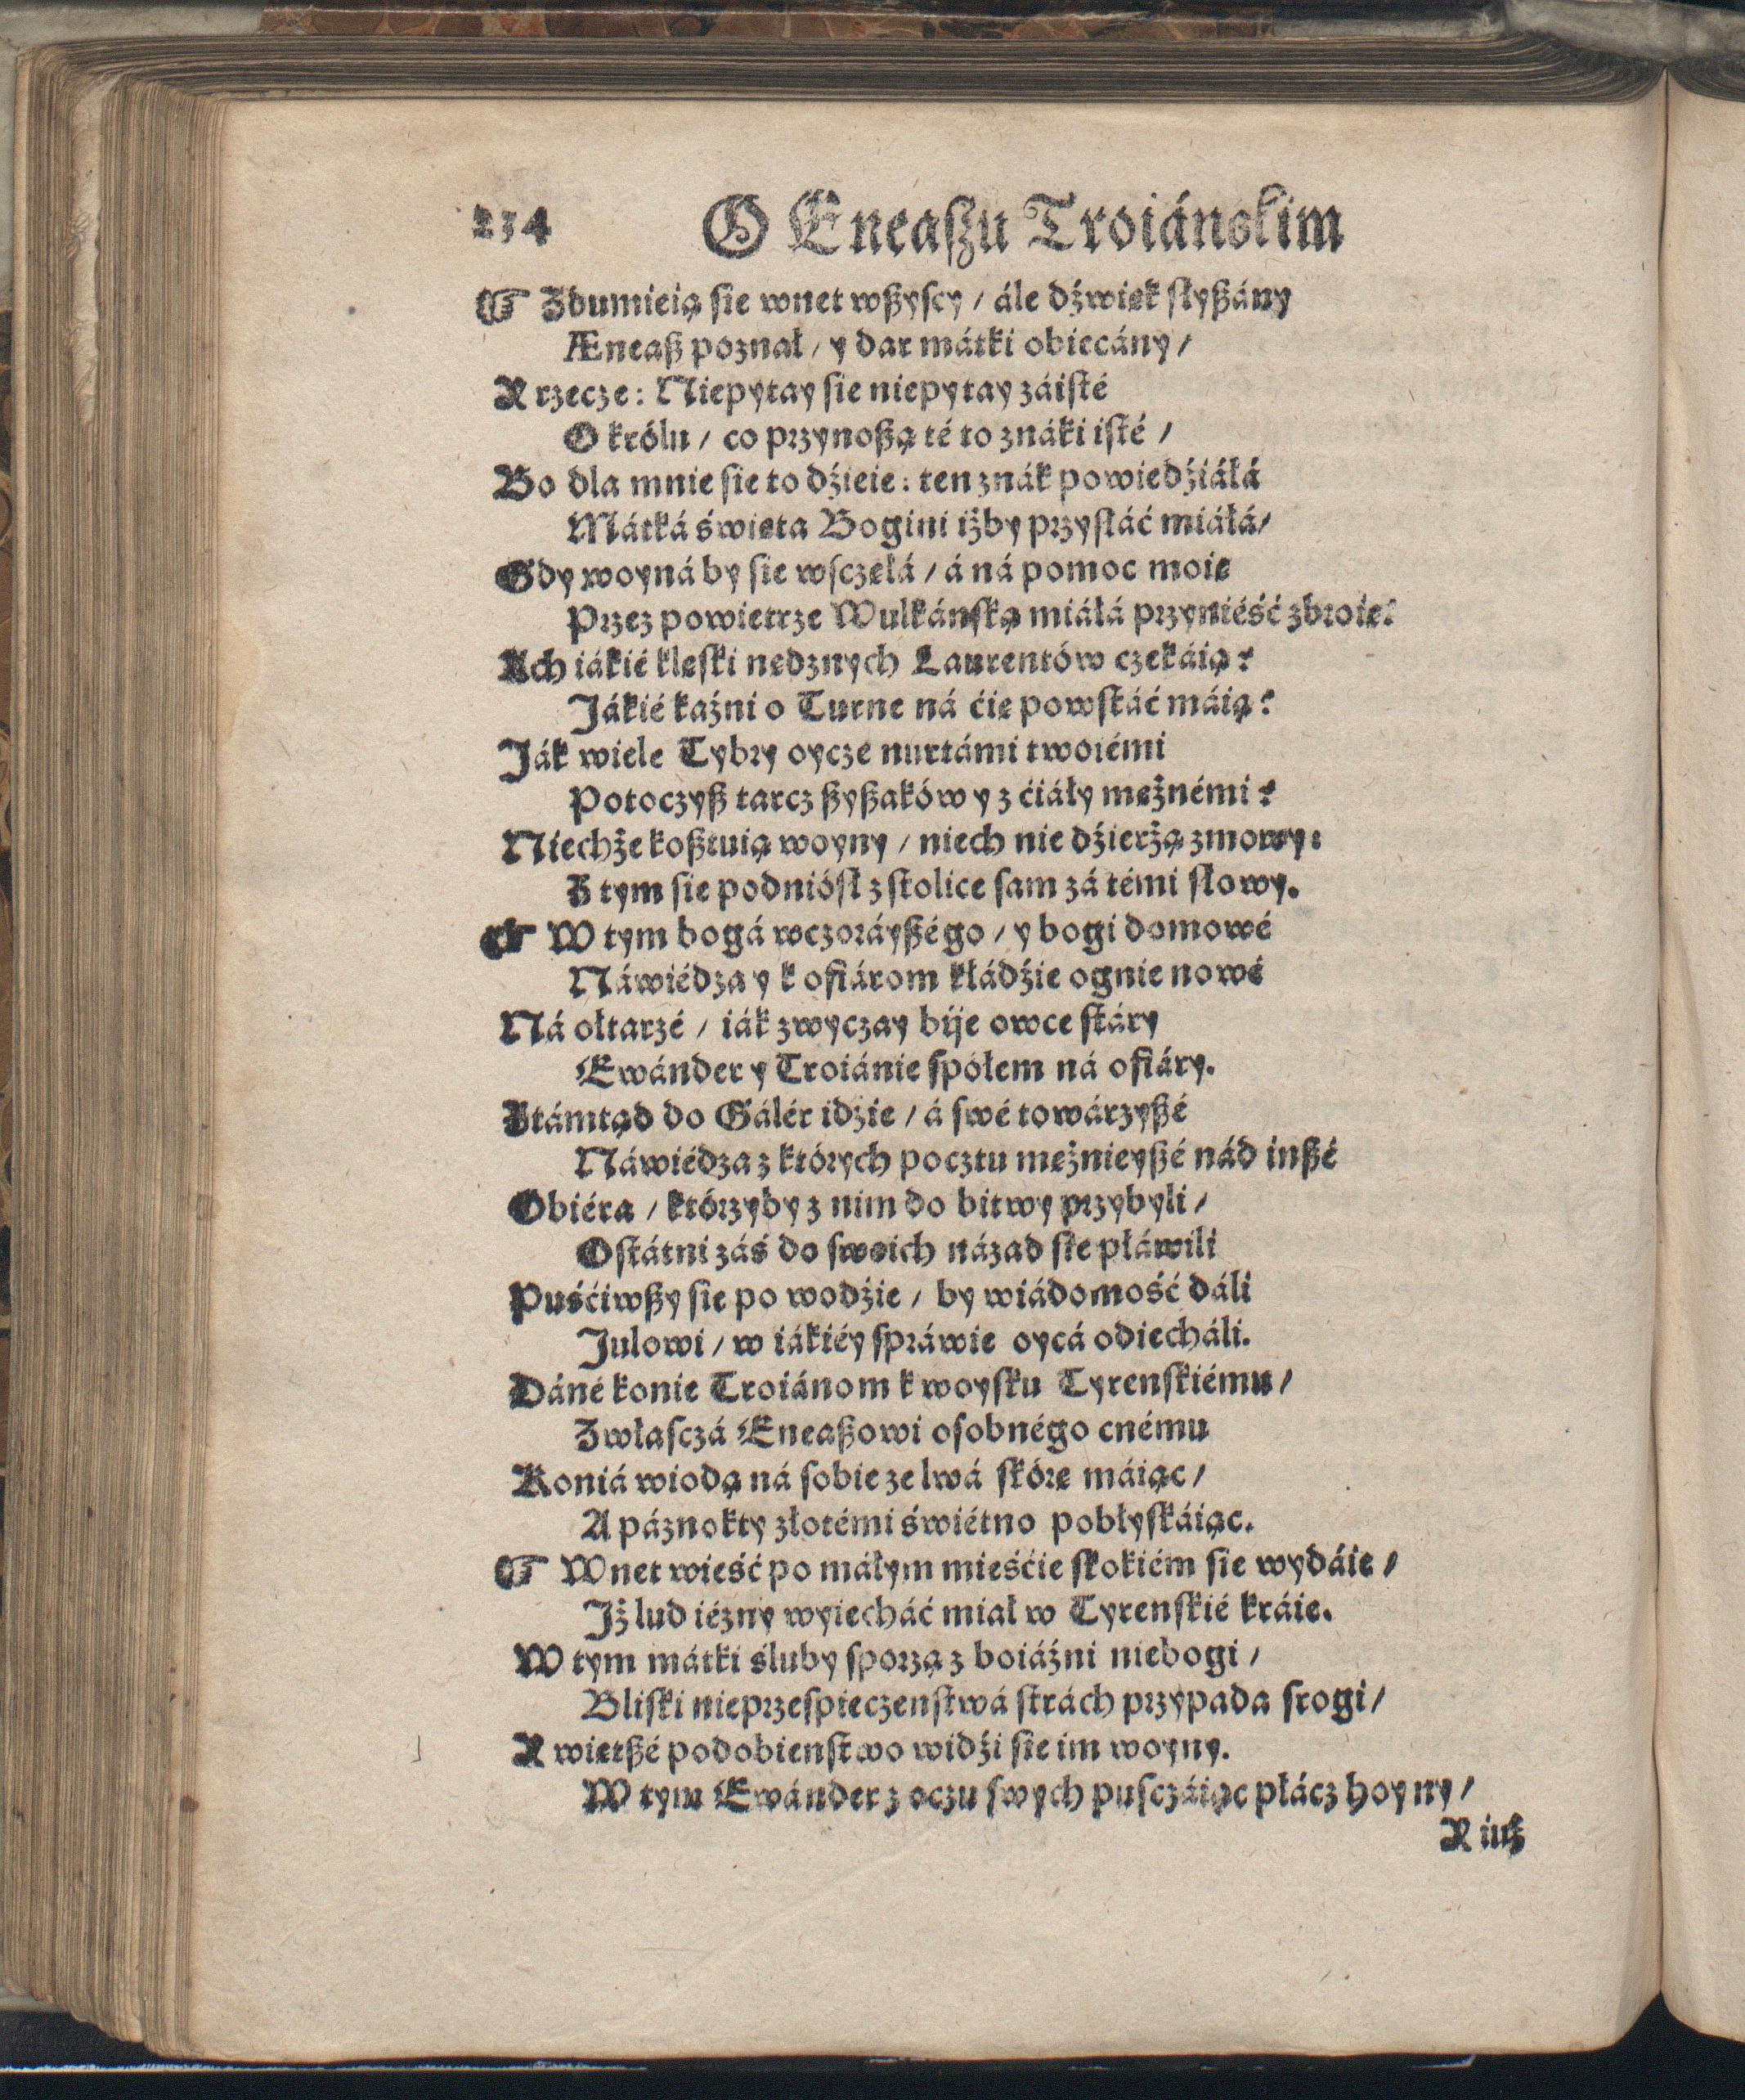 234 O Eneaſzu Troiánskim
☞ Zdumieią ſie wnet wßyſcy / ále dźwięk ſłyßány
Æneaß poznał / y dar mátki obiecány /
Y rzecze: Niepytay ſie niepytay záiſté
O królu / co przynoßą té to znáki iſté /
Bo dla mnie ſie to dźieie: ten znák powiedźiáłá
Mátká święta Bogini iżby przyſłáć miáłá /
Gdy woyná by ſie wſczęłá / á ná pomoc moię
Przez powietrze Wulkánſką miáłá przynieść zbroię.
Ach iákié klęſki nędznych Laurentów czekáią?
Jákié kaźni o Turne ná ćię powſtáć máią?
Ják wiele Tybry oycze nurtámi twoiémi
Potoczyß tarcz ßyßaków y z ćiáły mężnémi?
Niechże koßtuią woyny / niech nie dźierżą zmowy:
Z tym ſie podniósł z ſtolice ſam zá témi ſłowy.
☞ W tym bogá wczoráyßégo / y bogi domowé
Náwiédza y k ofiárom kłádźie ognie nowé
Ná ołtarzé / iák zwyczay bije owce ſtáry
Ewánder y Troiánie ſpółem ná ofiáry.
Ztámtąd do Gálér idźie / á ſwé towárzyßé
Náwiédza z których pocztu mężnieyßé nád inßé
Obiéra / którzyby z nim do bitwy przybyli /
Oſtátni záś do ſwoich názad ſie płáwili
Puśćiwßy ſie po wodźie / by wiádomość dáli
Julowi / w iákiéy ſpráwie oycá odiecháli.
Dáné konie Troiánom k woyſku Tyrenſkiému /
Zwłaſczá Eneaßowi oſobnégo cnému
Koniá wiodą ná ſobie ze lwá ſkórę máiąc /
A páznokty złotémi świétno pobłyſkáiąc.
☞ Wnet wieść po máłym mieśćie ſkokiém ſie wydáie /
Jż lud iézny wyiecháć miał w Tyrenſkié kráie.
W tym mátki śluby ſporzą z boiáźni niebogi /
Bliſki nieprzeſpieczenſtwá ſtrách przypada ſrogi /
Y więtßé podobienſtwo widźi ſie im woyny.
W tym Ewánder z oczu ſwych puſczáiąc płácz hoyny /
Y iuż